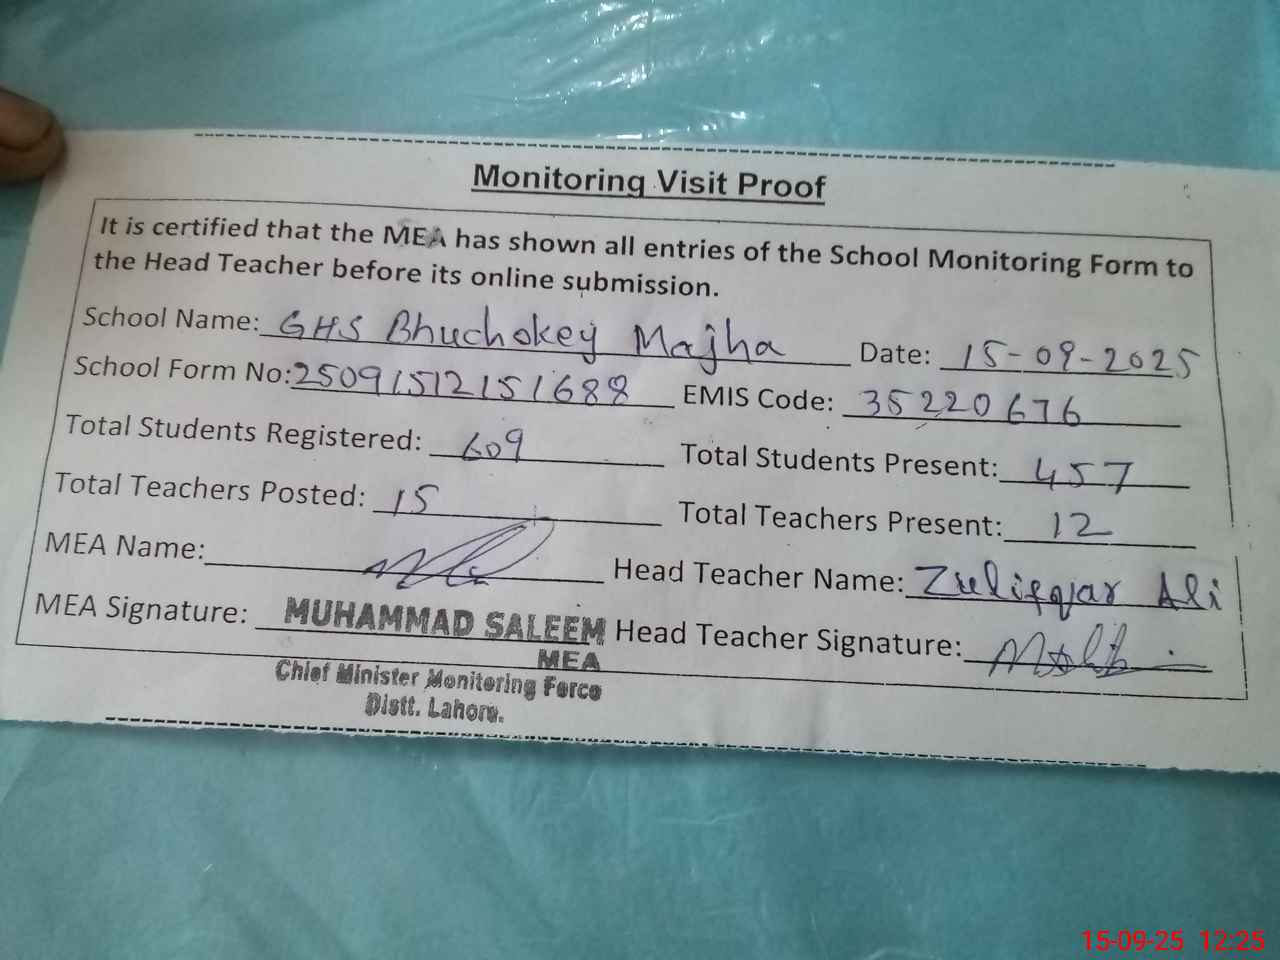 Monitoring Visit Proof
It is certified that the MEA has shown all entries of the School Monitoring Form to
the Head Teacher before its online submission.
School Name: GHS Bhuchokey Majha Date: 15-09-2025
School Form No: 25091512151688 EMIS Code: 35220676
Total Students Registered: 609 Total Students Present: 457
Total Teachers Posted: 15 Total Teachers Present: 12
MEA Name: Head Teacher Name: Zulifqar Ali
MEA Signature: MUHAMMAD SALEEM Head Teacher Signature:
MEA
Chief Minister Monitoring Force
Distt. Lahore.
15-09-25 12:25